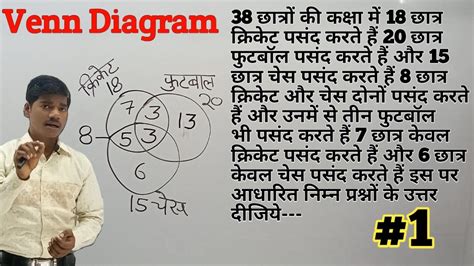 Venn Diagram
38 छात्रों की कक्षा में 18 छात्र
क्रिकेट पसंद करते हैं 20 छात्र
फुटबॉल पसंद करते हैं और 15
छात्र चेस पसंद करते हैं 8 छात्र
क्रिकेट और चेस दोनों पसंद करते
हैं और उनमें से तीन फुटबॉल
भी पसंद करते हैं 7 छात्र केवल
क्रिकेट पसंद करते हैं और 6 छात्र
केवल चेस पसंद करते हैं इस पर
आधारित निम्न प्रश्नों के उत्तर
दीजिये---
#1
क्रिकेट
18
फुटबाल
20
7 3 13
8 5 3
6
15-चेस